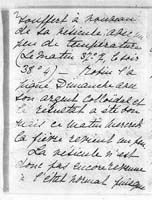 souffert à nouveau
de sa vésicule avec un
peu de température
(Le matin 37°2, le soir
38°4) — Robin l'a
piqué Dimanche avec
son argent colloïdal et
le résultat a été bon
mais ce matin Mercredi
la fièvre revient un peu
La vésicule n'est
donc pas encore revenue
à l'état normal puisque